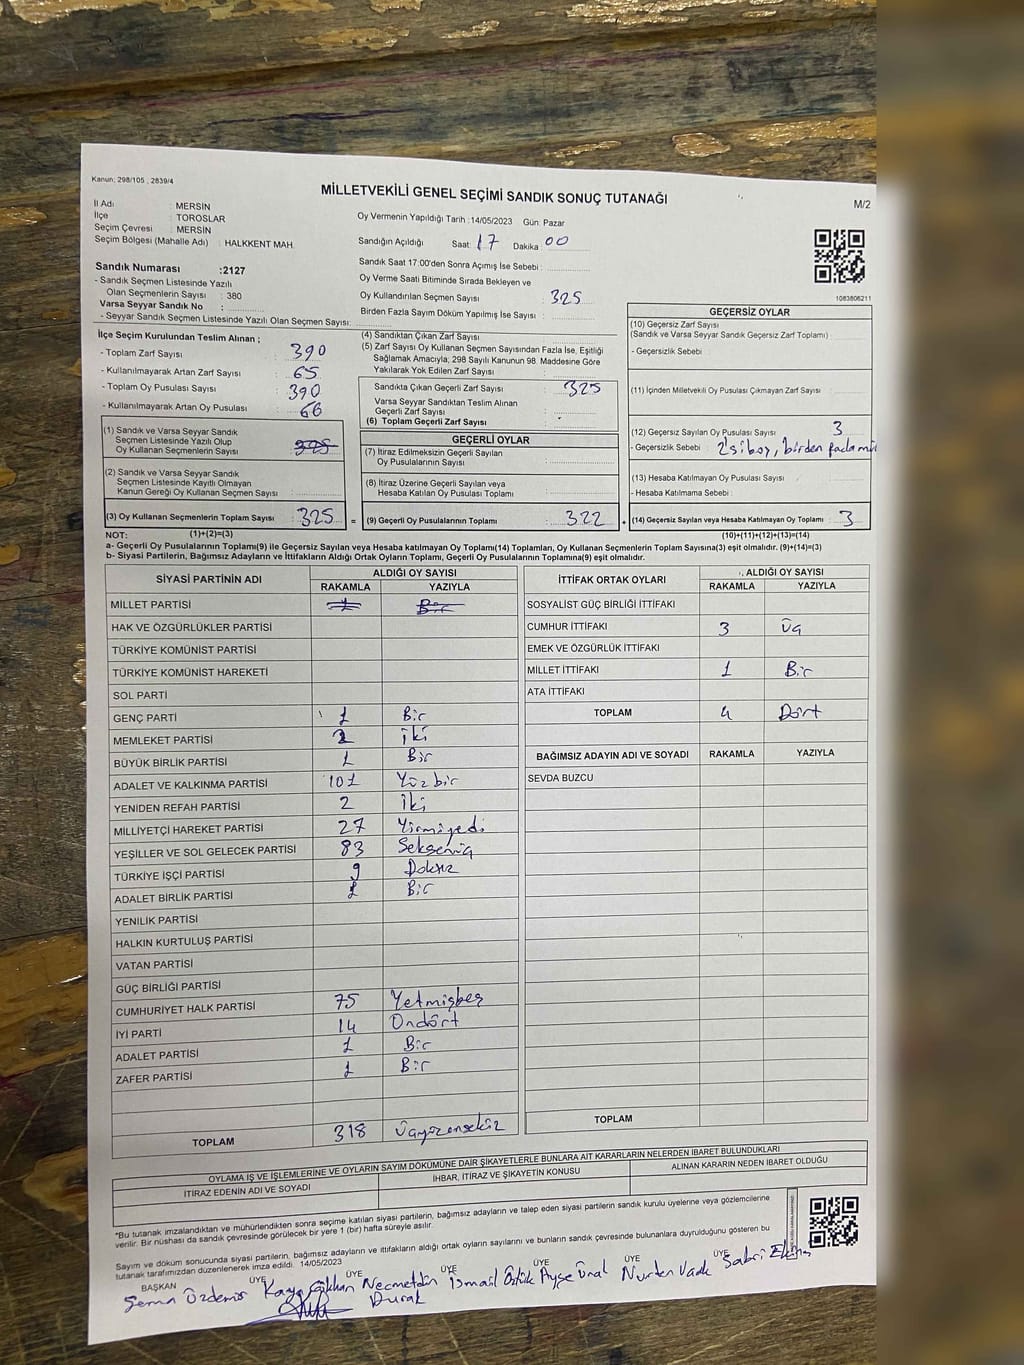 Kanun: 298/105 , 2839/4
MİLLETVEKİLİ GENEL SEÇİMİ SANDIK SONUÇ TUTANAĞI
M/2
İl Adı : MERSİN
İlçe : TOROSLAR
Seçim Çevresi : MERSİN
Seçim Bölgesi (Mahalle Adı) : HALKKENT MAH.
Oy Vermenin Yapıldığı Tarih : 14/05/2023 Gün: Pazar
Sandığın Açıldığı Saat: 17 Dakika : 00
Sandık Saat 17:00'den Sonra Açmış İse Sebebi :
Sandık Numarası :2127
- Sandık Seçmen Listesinde Yazılı
Olan Seçmenlerin Sayısı : 380
Varsa Seyyar Sandık No :
- Seyyar Sandık Seçmen Listesinde Yazılı Olan Seçmen Sayısı:
Oy Verme Saati Bitiminde Sırada Bekleyen ve
Oy Kullandırılan Seçmen Sayısı : 325
Birden Fazla Sayım Döküm Yapılmış İse Sayısı :
1083806211
İlçe Seçim Kurulundan Teslim Alınan ;
- Toplam Zarf Sayısı : 390
- Kullanılmayarak Artan Zarf Sayısı : 65
- Toplam Oy Pusulası Sayısı : 390
- Kullanılmayarak Artan Oy Pusulası : 66
(1) Sandık ve Varsa Seyyar Sandık
Seçmen Listesinde Yazılı Olup
Oy Kullanan Seçmenlerin Sayısı :
(2) Sandık ve Varsa Seyyar Sandık
Seçmen Listesinde Kayıtlı Olmayan
Kanun Gereği Oy Kullanan Seçmen Sayısı :
(3) Oy Kullanan Seçmenlerin Toplam Sayısı : 325
(4) Sandıktan Çıkan Zarf Sayısı :
(5) Zarf Sayısı Oy Kullanan Seçmen Sayısından Fazla İse, Eşitliği
Sağlamak Amacıyla; 298 Sayılı Kanunun 98. Maddesine Göre
Yakılarak Yok Edilen Zarf Sayısı :
Sandıkta Çıkan Geçerli Zarf Sayısı : 325
Varsa Seyyar Sandıktan Teslim Alınan
Geçerli Zarf Sayısı :
(6) Toplam Geçerli Zarf Sayısı :
GEÇERLİ OYLAR
(7) İtiraz Edilmeksizin Geçerli Sayılan
Oy Pusulalarının Sayısı :
(8) İtiraz Üzerine Geçerli Sayılan veya
Hesaba Katılan Oy Pusulası Toplamı :
= (9) Geçerli Oy Pusulalarının Toplamı : 322
GEÇERSİZ OYLAR
(10) Geçersiz Zarf Sayısı
(Sandık ve Varsa Seyyar Sandık Geçersiz Zarf Toplamı) :
- Geçersizlik Sebebi :
(11) İçinden Milletvekili Oy Pusulası Çıkmayan Zarf Sayısı :
(12) Geçersiz Sayılan Oy Pusulası Sayısı : 3
- Geçersizlik Sebebi : 2'si boş, birden
(13) Hesaba Katılmayan Oy Pusulası Sayısı :
- Hesaba Katılmama Sebebi :
+ (14) Geçersiz Sayılan veya Hesaba Katılmayan Oy Toplamı : 3
NOT: (1)+(2)=(3) (10)+(11)+(12)+(13)=(14)
a- Geçerli Oy Pusulalarının Toplamı(9) ile Geçersiz Sayılan veya Hesaba katılmayan Oy Toplamı(14) Toplamları, Oy Kullanan Seçmenlerin Toplam Sayısına(3) eşit olmalıdır. (9)+(14)=(3)
b- Siyasi Partilerin, Bağımsız Adayların ve İttifakların Aldığı Ortak Oyların Toplamı, Geçerli Oy Pusulalarının Toplamına(9) eşit olmalıdır.
SİYASİ PARTİNİN ADI ALDIĞI OY SAYISI
RAKAMLA YAZIYLA
MİLLET PARTİSİ 1 Bir
HAK VE ÖZGÜRLÜKLER PARTİSİ
TÜRKİYE KOMÜNİST PARTİSİ
TÜRKİYE KOMÜNİST HAREKETİ
SOL PARTİ
GENÇ PARTİ 1 Bir
MEMLEKET PARTİSİ 2 İki
BÜYÜK BİRLİK PARTİSİ 1 Bir
ADALET VE KALKINMA PARTİSİ 101 Yüzbir
YENİDEN REFAH PARTİSİ 2 İki
MİLLİYETÇİ HAREKET PARTİSİ 27 Yirmiyedi
YEŞİLLER VE SOL GELECEK PARTİSİ 83 Seksenüç
TÜRKİYE İŞÇİ PARTİSİ 9 Dokuz
ADALET BİRLİK PARTİSİ 1 Bir
YENİLİK PARTİSİ
HALKIN KURTULUŞ PARTİSİ
VATAN PARTİSİ
GÜÇ BİRLİĞİ PARTİSİ
CUMHURİYET HALK PARTİSİ 75 Yetmişbeş
İYİ PARTİ 14 Ondört
ADALET PARTİSİ 1 Bir
ZAFER PARTİSİ 1 Bir
TOPLAM 318 Üçyüzonsekiz
İTTİFAK ORTAK OYLARI ALDIĞI OY SAYISI
RAKAMLA YAZIYLA
SOSYALİST GÜÇ BİRLİĞİ İTTİFAKI
CUMHUR İTTİFAKI 3 Üç
EMEK VE ÖZGÜRLÜK İTTİFAKI
MİLLET İTTİFAKI 1 Bir
ATA İTTİFAKI
TOPLAM 4 Dört
BAĞIMSIZ ADAYIN ADI VE SOYADI RAKAMLA YAZIYLA
SEVDA BUZCU
TOPLAM
OYLAMA İŞ VE İŞLEMLERİNE VE OYLARIN SAYIM DÖKÜMÜNE DAİR ŞİKAYETLERLE BUNLARA AİT KARARLARIN NELERDEN İBARET BULUNDUKLARI
İTİRAZ EDENİN ADI VE SOYADI İHBAR, İTİRAZ VE ŞİKAYETİN KONUSU ALINAN KARARIN NEDEN İBARET OLDUĞU
*Bu tutanak imzalandıktan ve mühürlendikten sonra seçime katılan siyasi partilerin, bağımsız adayların ve talep eden siyasi partilerin sandık kurulu üyelerine veya gözlemcilerine
verilir. Bir nüshası da sandık çevresinde görülecek bir yere 1 (bir) hafta süreyle asılır.
Sayım ve döküm sonucunda siyasi partilerin, bağımsız adayların ve ittifakların aldığı ortak oyların sayılarını ve bunların sandık çevresinde bulunanlara duyrulduğunu gösteren bu
tutanak tarafımızdan düzenlenerek imza edildi. 14/05/2023
BAŞKAN ÜYE ÜYE ÜYE ÜYE ÜYE ÜYE
Sema Özdemir Kaya Gökhan Necmettin Durak İsmail Öztük Ayşe Ünal Nurten Sabri